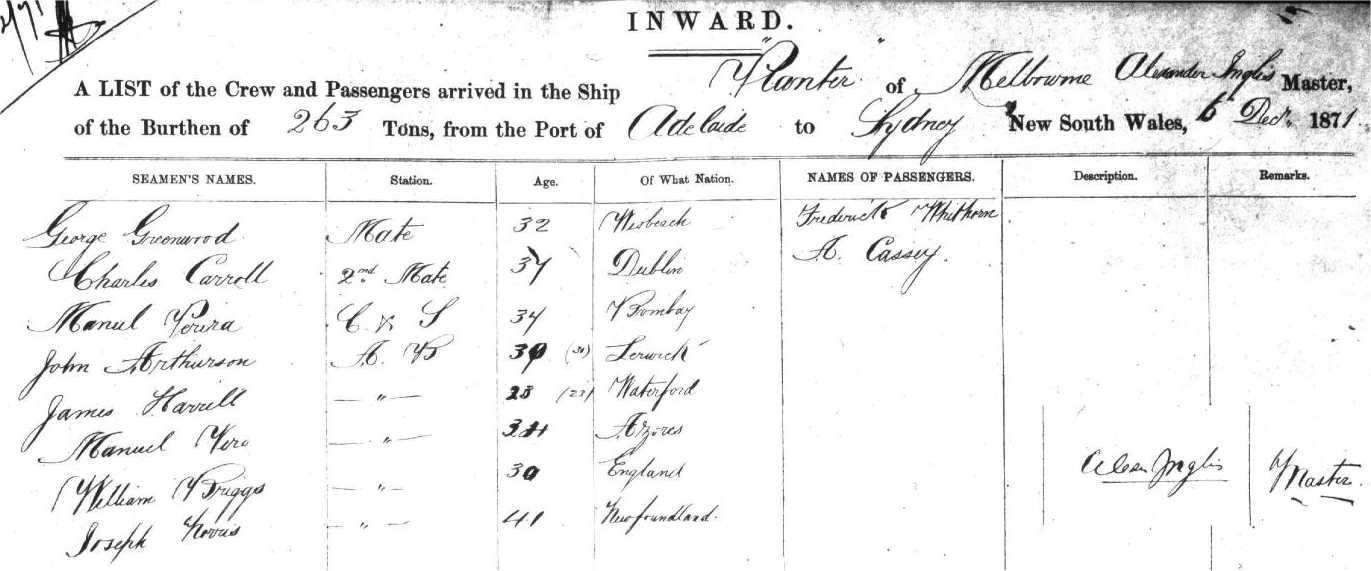 INWARD.
A LIST of the Crew and Passengers arrived in the Ship "Planter" of Melbourne Alexander Inglis Master,
of the Burthen of 263 Tons, from the Port of Adelaide to Sydney New South Wales, 6 Decr. 1871.
SEAMEN'S NAMES. Station. Age. Of What Nation. NAMES OF PASSENGERS. Description. Remarks.
George Greenwood Mate 32 Wisbeach Frederick Whithorn
Charles Carroll 2nd Mate 34 Dublin A. Cassey.
Manuel C & S 34 Bombay
John Arthurson A. B 30 (30) Lerwick
James Harrill —"— 23 (23) Waterford
Manuel —"— 34 Azores
William Briggs —"— 30 England Alexr Inglis Master.
Joseph Norris —"— 41 Newfoundland.